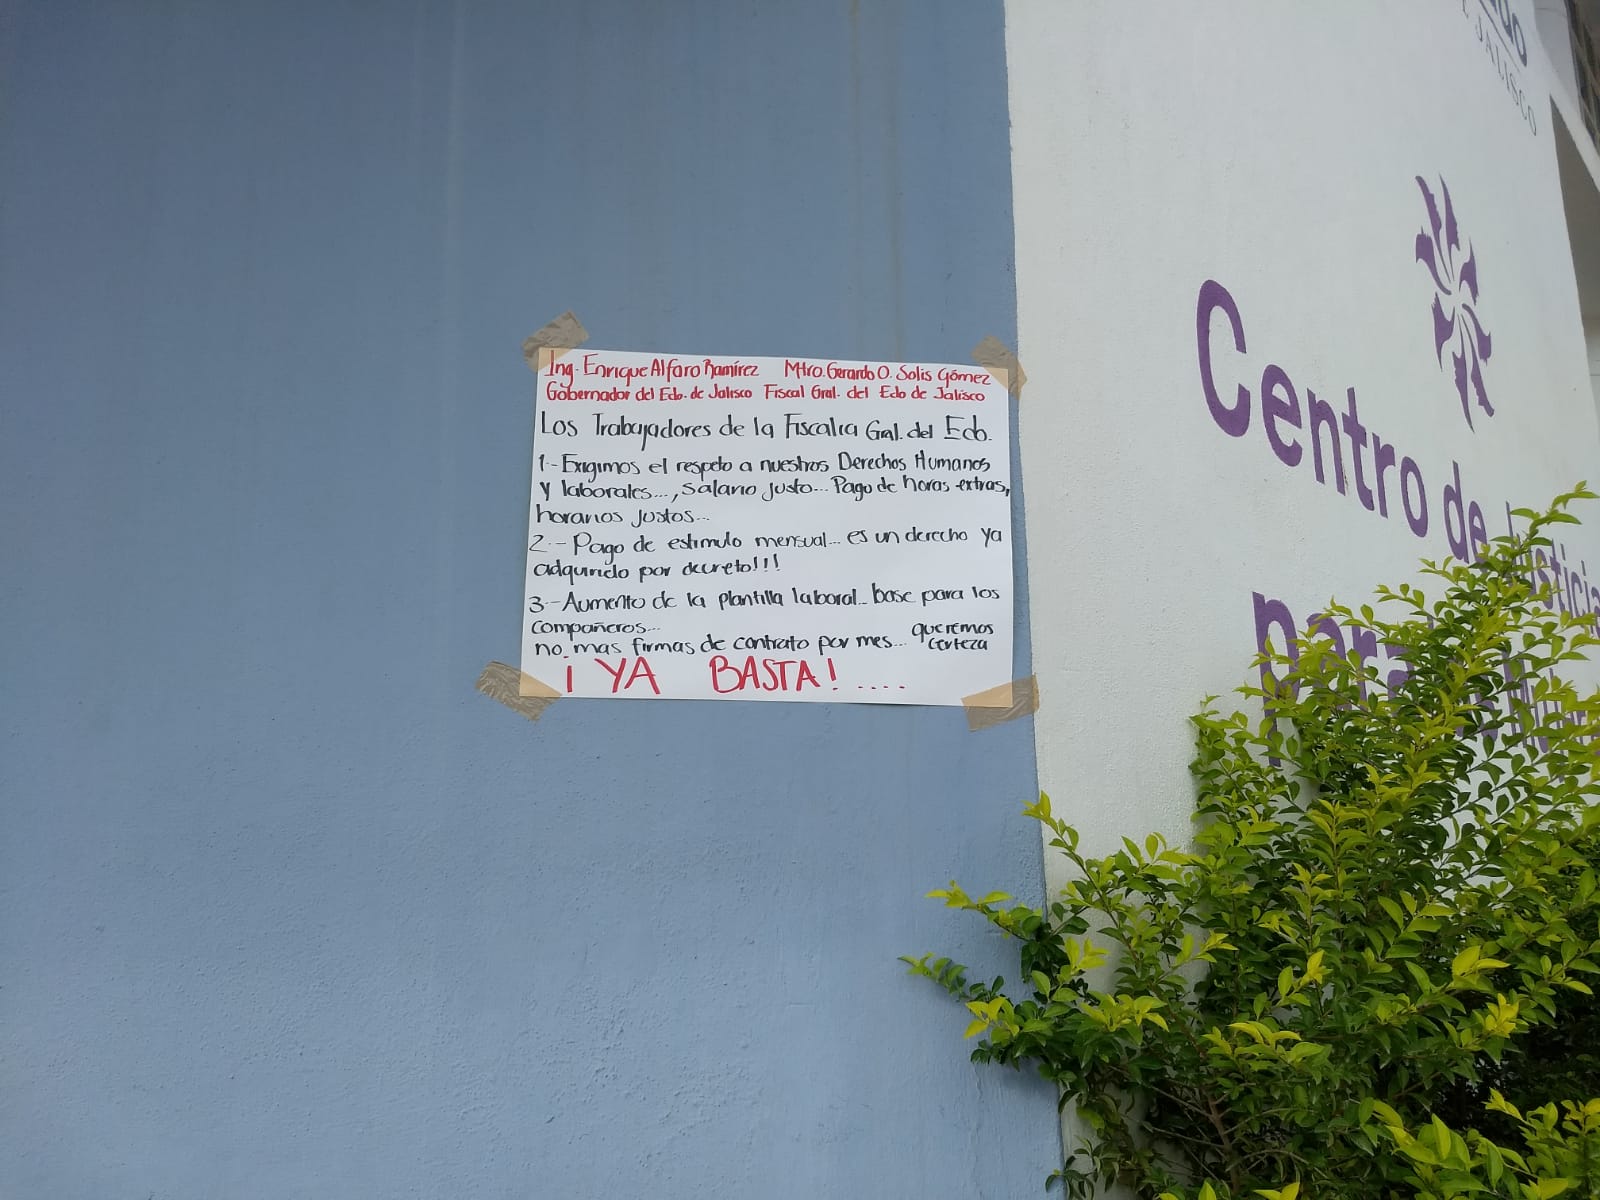 Ing. Enrique Alfaro Ramírez Mtro. Gerardo O. Solis Gómez
Gobernador del Edo. de Jalisco Fiscal Gral. del Edo de Jalisco
Los Trabajadores de la Fiscalia Gral. del Edo.
1.- Exigimos el respeto a nuestros Derechos Humanos
y laborales..., salario justo... Pago de horas extras,
horarios justos...
2.- Pago de estimulo mensual... es un derecho ya
adquirido por decreto!!!
3.- Aumento de la plantilla laboral... base para los
compañeros...
no mas firmas de contrato por mes... queremos certeza
¡YA BASTA!....
JALISCO
Centro de Justicia
para